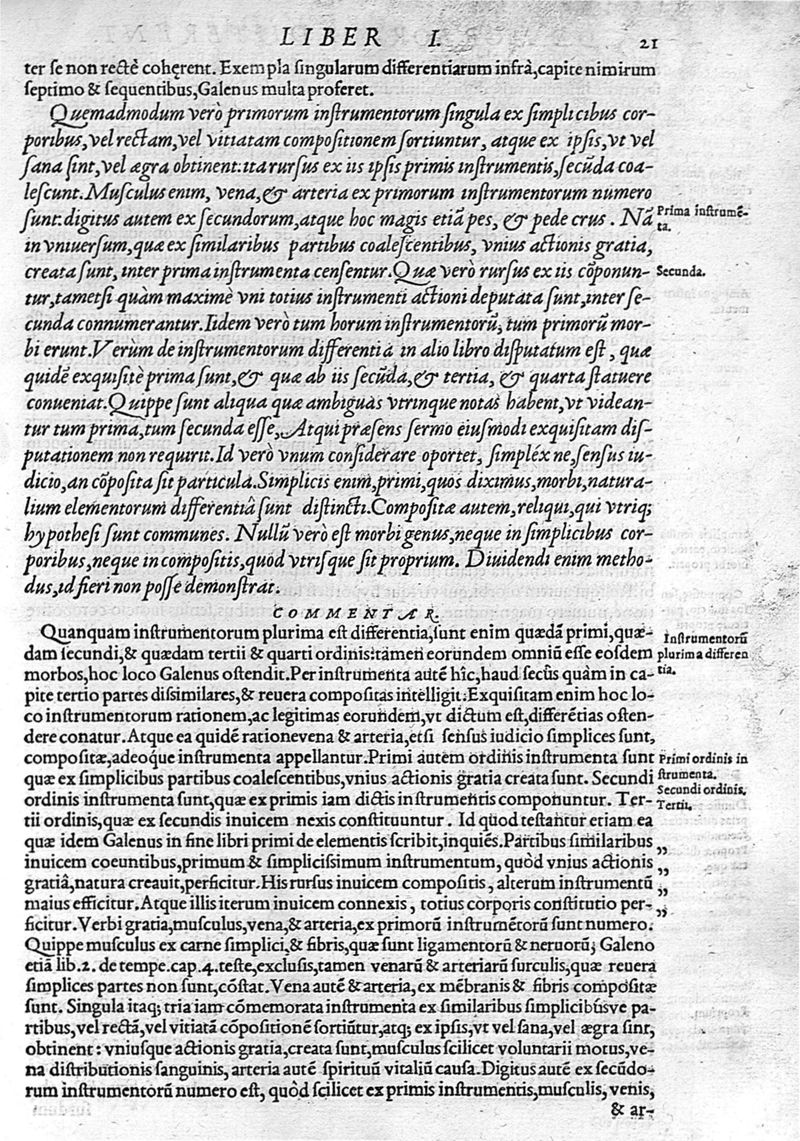 LIBER I. 21
ter se non rectè cohęrent. Exempla singularum differentiarum infrà, capite nimirum
septimo & sequentibus, Galenus multa proferet.
Quemadmodum verò primorum instrumentorum singula ex simplicibus cor-
poribus, vel rectam, vel vitiatam compositionem sortiuntur, atque ex ipsis, vt vel
sana sint, vel ægra obtinent: ita rursus ex iis ipsis primis instrumentis, secūda coa-
lescunt. Musculus enim, vena, & arteria ex primorum instrumentorum numero
sunt: digitus autem ex secundorum, atque hoc magis etiā pes, & pede crus. Nā
Prima instrumē-
ta.
in vniuersum, quæ ex similaribus partibus coalescentibus, vnius actionis gratia,
creata sunt, inter prima instrumenta censentur. Quæ verò rursus ex iis cōponun-
Secunda.
tur, tametsi quàm maximè vni totius instrumenti actioni deputata sunt, inter se-
cunda connumerantur. Iidem verò tum horum instrumentorū, tum primorū mor-
bi erunt. Verùm de instrumentorum differentia in alio libro disputatum est, quæ
quidē exquisitè prima sunt, & quæ ab iis secūda, & tertia, & quarta statuere
conueniat. Quippe sunt aliqua quæ ambiguas vtrinque notas habent, vt videan-
tur tum prima, tum secunda esse, Atqui præsens sermo eiusmodi exquisitam dis-
putationem non requirit. Id verò vnum considerare oportet, simpléx ne, sensus iu-
dicio, an cōposita sit particula. Simplicis enim, primi, quos diximus, morbi, natura-
lium elementorum differentiâ sunt distincti. Compositæ autem, reliqui, qui vtriq;
hypothesi sunt communes. Nullū verò est morbi genus, neque in simplicibus cor-
poribus, neque in compositis, quod vtrisque sit proprium. Diuidendi enim metho-
dus, id fieri non posse demonstrat.
COMMENTAR.
Quanquam instrumentorum plurima est differentia, sunt enim quædā primi, quæ-
dam secundi, & quædam tertii & quarti ordinis: tamen eorundem omniū esse eosdem
morbos, hoc loco Galenus ostendit. Per instrumenta autē hîc, haud secûs quàm in ca-
Instrumentorū
plurima differen
tia.
pite tertio partes dissimilares, & reuera compositas intelligit: Exquisitam enim hoc lo-
co instrumentorum rationem, ac legitimas eorundem, vt dictum est, differētias osten-
dere conatur. Atque ea quidē ratione vena & arteria, etsi sensus iudicio simplices sunt,
compositæ, adeoque instrumenta appellantur. Primi autem ordinis instrumenta sunt
quæ ex simplicibus partibus coalescentibus, vnius actionis gratia creata sunt. Secundi
Primi ordinis in
strumenta.
ordinis instrumenta sunt, quæ ex primis iam dictis instrumentis componuntur. Ter-
Secundi ordinis.
tii ordinis, quæ ex secundis inuicem nexis constituuntur. Id quod testantur etiam ea
Tertii.
quæ idem Galenus in fine libri primi de elementis scribit, inquiēs. Partibus similaribus
inuicem coeuntibus, primum & simplicissimum instrumentum, quòd vnius actionis „
gratiâ, natura creauit, perficitur. His rursus inuicem compositis, alterum instrumentū „
maius efficitur. Atque illis iterum inuicem connexis, totius corporis constitutio per- „
ficitur. Verbi gratia, musculus, vena, & arteria, ex primorū instrumētorū sunt numero. „
Quippe musculus ex carne simplici, & fibris, quæ sunt ligamentorū & neruorū, Galeno
etiā lib. 2. de tempe. cap. 4. teste, exclusis, tamen venarū & arteriarū surculis, quæ reuera
simplices partes non sunt, cōstat. Vena autē & arteria, ex mēbranis & fibris compositæ
sunt. Singula itaq; tria iam cōmemorata instrumenta ex similaribus simplicibusve pa-
rtibus, vel rectā, vel vitiatā cōpositionē sortiūtur, atq; ex ipsis, vt vel sana, vel ægra sint,
obtinent: vniusque actionis gratia, creata sunt, musculus scilicet voluntarii motus, ve-
na distributionis sanguinis, arteria autē spirituū vitaliū causa. Digitus autē ex secūdo-
rum instrumentorū numero est, quòd scilicet ex primis instrumentis, musculis, venis,
& ar-